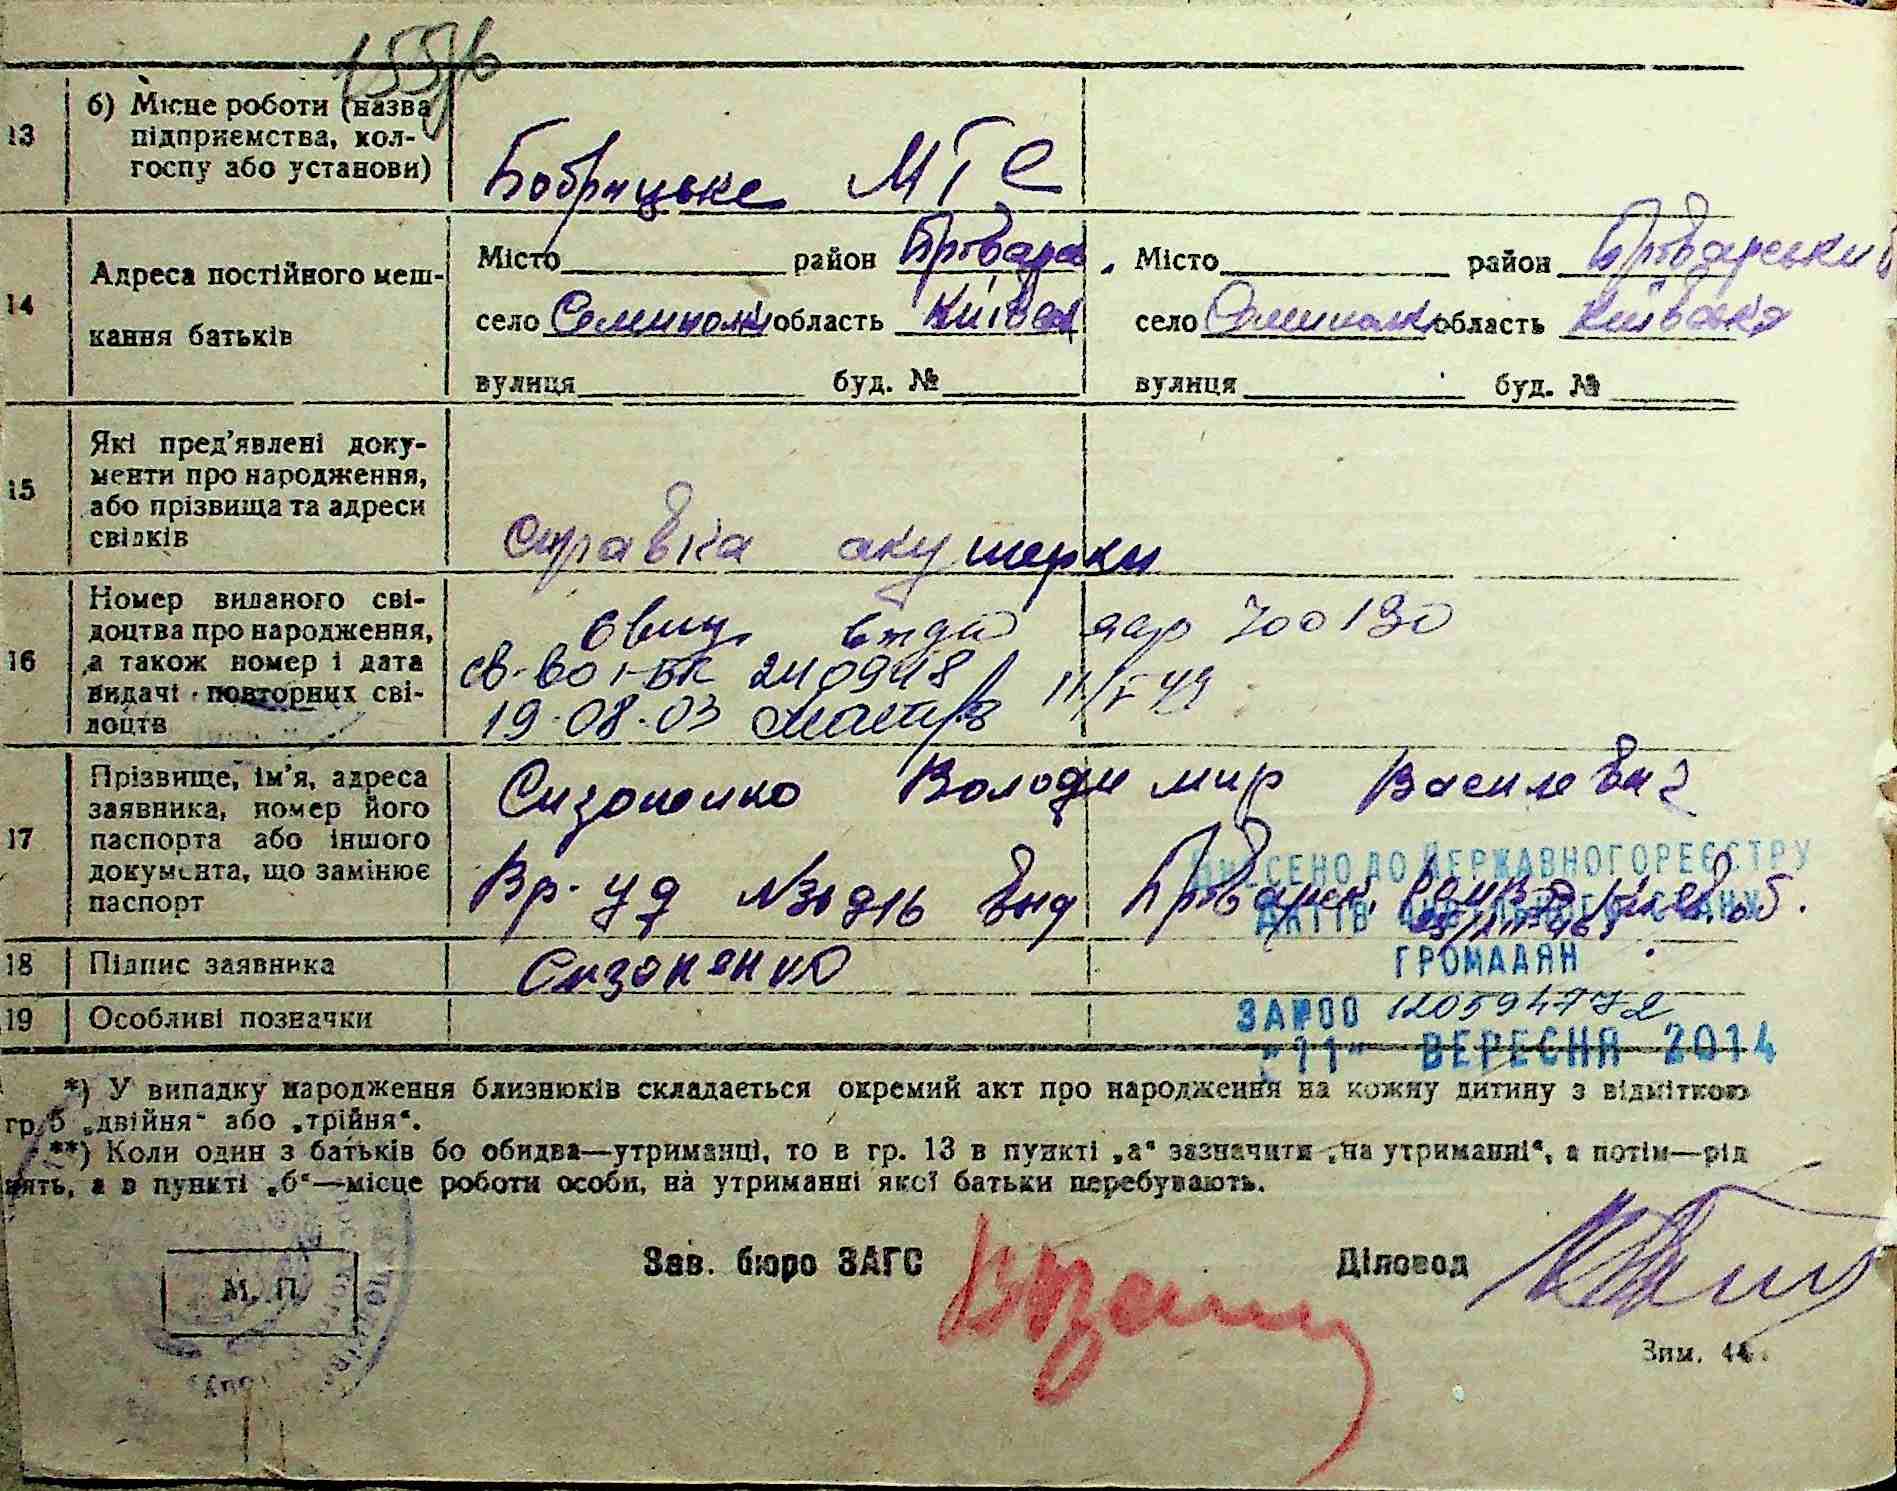 13 б) Місце роботи (назва
підприємства, кол-
госпу або установи)
Бобрицьке МТС
14 Адреса постійного меш-
кання батьків
Місто район Бровар.
село Семиполки область Київськ
вулиця буд. №
Місто район Броварський
село Семиполки область Київська
вулиця буд. №
15 Які пред'явлені доку-
менти про народження,
або прізвища та адреси
свідків
справка акушерки
16 Номер виданого сві-
доцтва про народження,
а також номер і дата
видачі повторних сві-
доцтв
700130
19-08-03
17 Прізвище, ім'я, адреса
заявника, номер його
паспорта або іншого
документа, що замінює
паспорт
Сизоненко Володимир Василевич
Вр. уд
18 Підпис заявника Сизоненко
19 Особливі позначки
ВНЕСЕНО ДО ДЕРЖАВНОГО РЕЄСТРУ
АКТІВ ЦИВІЛЬНОГО СТАНУ
ГРОМАДЯН
ЗА №00 120594772
"11" ВЕРЕСНЯ 2014
*) У випадку народження близнюків складається окремий акт про народження на кожну дитину з відміткою
гр. 5 „двійня" або „трійня".
**) Коли один з батьків бо обидва—утриманці, то в гр. 13 в пункті „а" зазначити „на утриманні", а потім—рід
нять, а в пункті „б"—місце роботи особи, на утриманні якої батьки перебувають.
М. П.
Зав. бюро ЗАГС
Діловод
Зим. 44